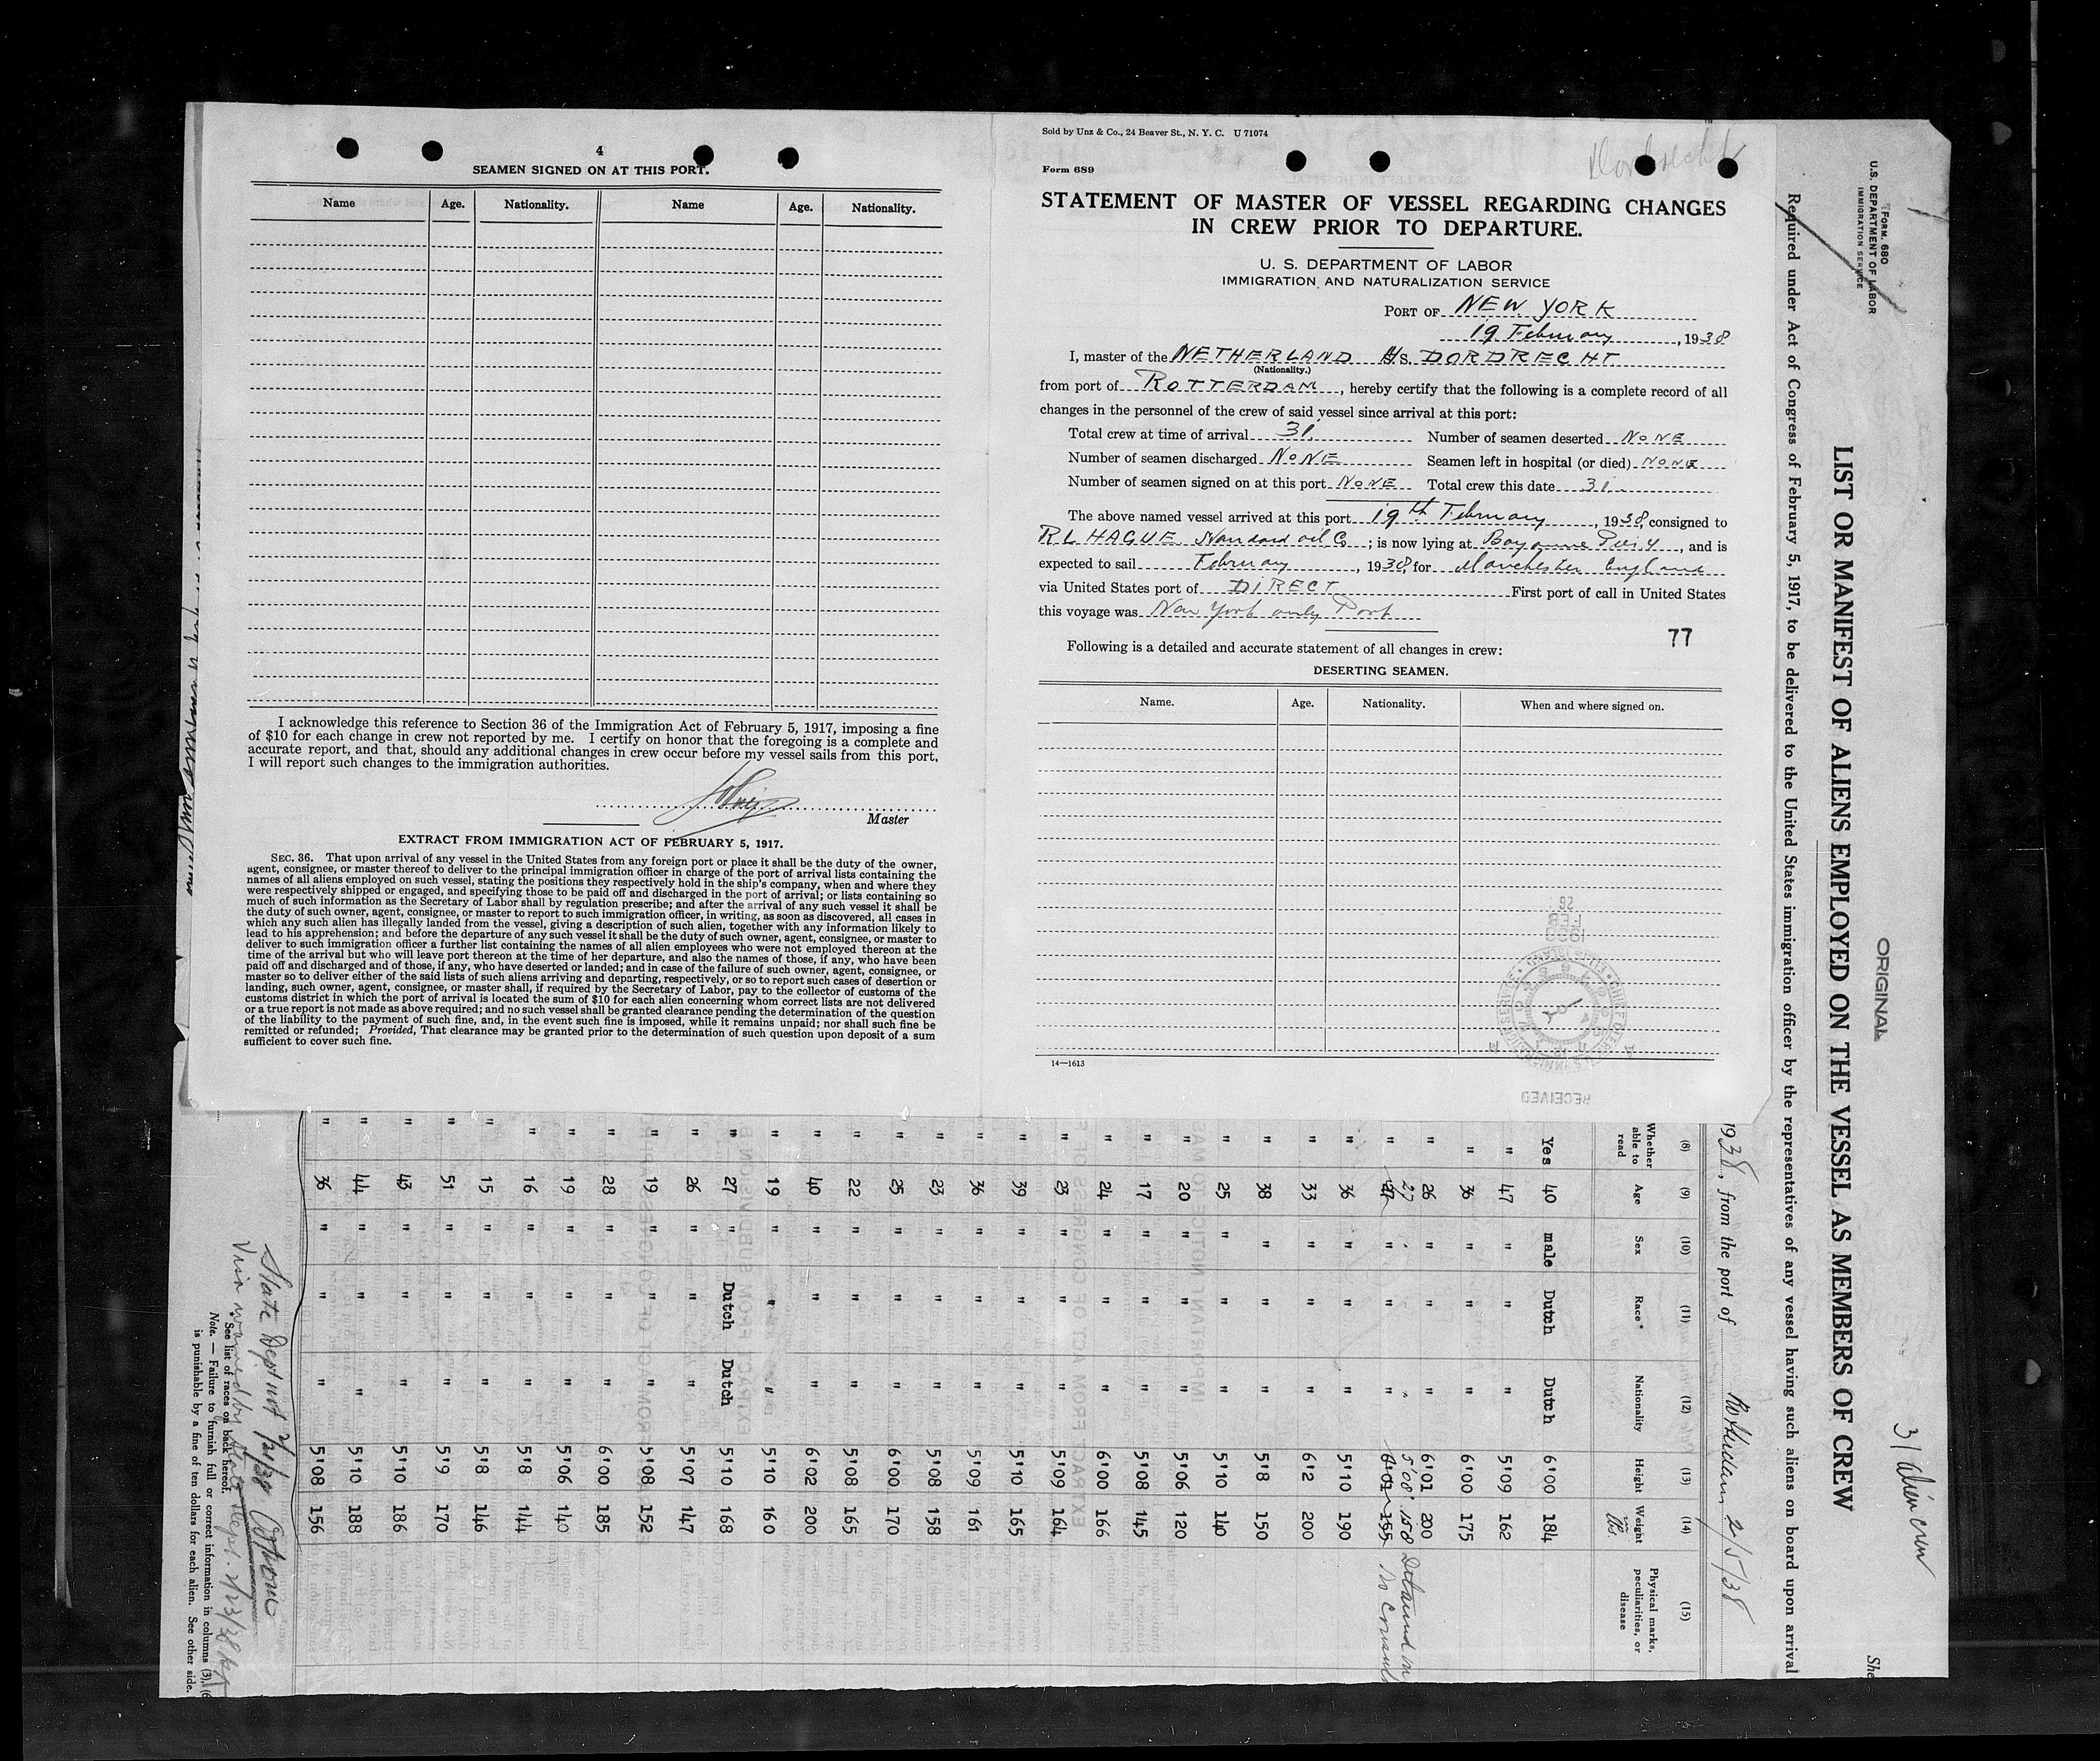 4
SEAMEN SIGNED ON AT THIS PORT.
Name Age. Nationality. Name Age. Nationality.
I acknowledge this reference to Section 36 of the Immigration Act of February 5, 1917, imposing a fine
of $10 for each change in crew not reported by me. I certify on honor that the foregoing is a complete and
accurate report, and that, should any additional changes in crew occur before my vessel sails from this port,
I will report such changes to the immigration authorities.
Master
EXTRACT FROM IMMIGRATION ACT OF FEBRUARY 5, 1917.
SEC. 36. That upon arrival of any vessel in the United States from any foreign port or place it shall be the duty of the owner,
agent, consignee, or master thereof to deliver to the principal immigration officer in charge of the port of arrival lists containing the
names of all aliens employed on such vessel, stating the positions they respectively hold in the ship's company, when and where they
were respectively shipped or engaged, and specifying those to be paid off and discharged in the port of arrival; or lists containing so
much of such information as the Secretary of Labor shall by regulation prescribe; and after the arrival of any such vessel it shall be
the duty of such owner, agent, consignee, or master to report to such immigration officer, in writing, as soon as discovered, all cases in
which any such alien has illegally landed from the vessel, giving a description of such alien, together with any information likely to
lead to his apprehension; and before the departure of any such vessel it shall be the duty of such owner, agent, consignee, or master to
deliver to such immigration officer a further list containing the names of all alien employees who were not employed thereon at the
time of the arrival but who will leave port thereon at the time of her departure, and also the names of those, if any, who have been
paid off and discharged and of those, if any, who have deserted or landed; and in case of the failure of such owner, agent, consignee, or
master so to deliver either of the said lists of such aliens arriving and departing, respectively, or so to report such cases of desertion or
landing, such owner, agent, consignee, or master shall, if required by the Secretary of Labor, pay to the collector of customs of the
customs district in which the port of arrival is located the sum of $10 for each alien concerning whom correct lists are not delivered
or a true report is not made as above required; and no such vessel shall be granted clearance pending the determination of the question
of the liability to the payment of such fine, and, in the event such fine is imposed, while it remains unpaid; nor shall such fine be
remitted or refunded; Provided, That clearance may be granted prior to the determination of such question upon deposit of a sum
sufficient to cover such fine.
Sold by Unz & Co., 24 Beaver St., N. Y. C. U 71074
Dordrecht
Form 689
STATEMENT OF MASTER OF VESSEL REGARDING CHANGES
IN CREW PRIOR TO DEPARTURE.
U. S. DEPARTMENT OF LABOR
IMMIGRATION AND NATURALIZATION SERVICE
PORT OF NEW YORK
19 February, 1938
I, master of the NETHERLAND S/S. DORDRECHT.
(Nationality.)
from port of ROTTERDAM, hereby certify that the following is a complete record of all
changes in the personnel of the crew of said vessel since arrival at this port:
Total crew at time of arrival 31. Number of seamen deserted NONE
Number of seamen discharged NONE Seamen left in hospital (or died) NONE
Number of seamen signed on at this port NONE Total crew this date 31
The above named vessel arrived at this port 19th February, 1938, consigned to
R L HAGUE Standard oil Co; is now lying at Bayonne Pier 4, and is
expected to sail February, 1938, for Manchester England
via United States port of DIRECT First port of call in United States
this voyage was New York only Port
77
Following is a detailed and accurate statement of all changes in crew:
DESERTING SEAMEN.
Name. Age. Nationality. When and where signed on.
26
FEB
1938
RECEIVED
14—1613
Form 680
U.S. DEPARTMENT OF LABOR
IMMIGRATION SERVICE
ORIGINAL
31 alien crew
She
LIST OR MANIFEST OF ALIENS EMPLOYED ON THE VESSEL AS MEMBERS OF CREW
Required under Act of Congress of February 5, 1917, to be delivered to the United States immigration officer by the representatives of any vessel having such aliens on board upon arrival
1938, from the port of Rotterdam 2/5/38
(8) (9) (10) (11) (12) (13) (14) (15)
Whether able to read Age Sex Race* Nationality Height Weight lbs. Physical marks, peculiarities, or disease
Yes 40 male Dutch Dutch 6'00 184
" 47 " " " 5'09 162
" 36 " " " 6'00 175
" 26 " " " 6'01 200
27 " " 5'08 158 Detained on
" 27 " " " 6'01 155 No Consul
" 36 " " " 5'10 190
" 33 " " " 6'2 200
" 38 " " " 5'8 150
" 25 " " " 5'10 140
" 20 " " " 5'06 120
" 17 " " " 5'08 145
" 24 " " " 6'00 166
" 23 " " " 5'09 164
" 39 " " " 5'10 165
" 36 " " " 5'09 161
" 23 " " " 5'08 158
" 25 " " " 6'00 170
" 22 " " " 5'08 165
" 40 " " " 6'02 200
" 19 " " " 5'10 160
" 27 " Dutch Dutch 5'10 168
" 26 " " " 5'07 147
" 19 " " " 5'08 152
" 28 " " " 6'00 185
" 19 " " " 5'06 140
" 16 " " " 5'8 144
" 15 " " " 5'8 146
" 51 " " " 5'9 170
" 43 " " " 5'10 186
" 44 " " " 5'10 188
" 36 " " " 5'08 156
State Dept not 2/21/38
Visa waived by State Dept. 2/23/38
* See list of races on back hereof.
Note. — Failure to furnish full or correct information in columns (3), (6
is punishable by a fine of ten dollars for each alien. See other side.